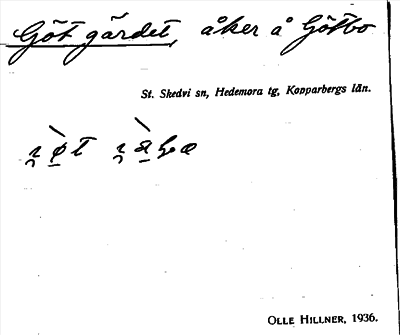 Götgärdet, åker å Götbo
St. Skedvi sn, Hedemora tg, Kopparbergs län.
OLLE HILLNER, 1936.